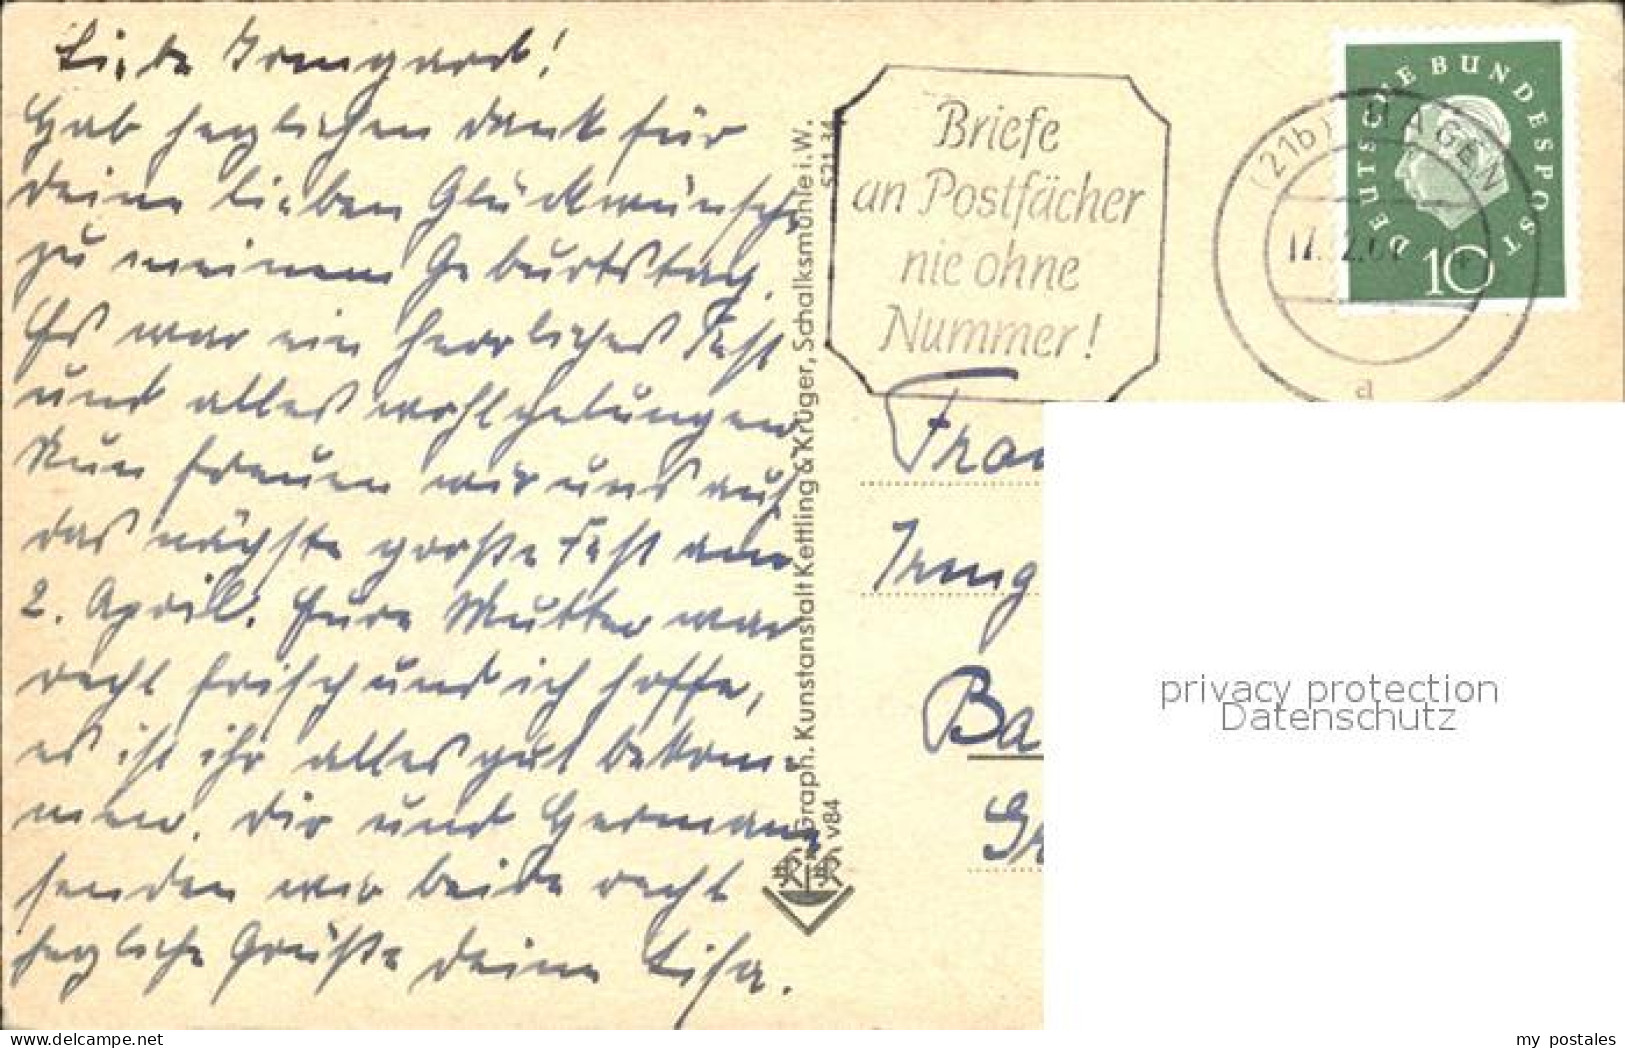 Liebe Irmgard!
Hab herzlichen Dank für
deine lieben Glückwünsche
zu meinem Geburtstag.
Es war ein herrliches Fest
und alles wohlgelungen.
Nun freuen wir uns auf
das nächste große Fest am
2. April. Eure Mutter war
recht frisch und ich hoffe,
es ist ihr alles gut bekom-
men. Dir und Hermann
senden wir beide recht
herzliche Grüße deine Lisa.
Graph. Kunstanstalt Kettling & Krüger, Schalksmühle i.W.
521 34
v84
Briefe
an Postfächer
nie ohne
Nummer!
(21b) HAGEN
a
DEUTSCHE BUNDESPOST
10
Frau
Irmg
Ba
privacy protection
Datenschutz
www.delcampe.net
my_postales